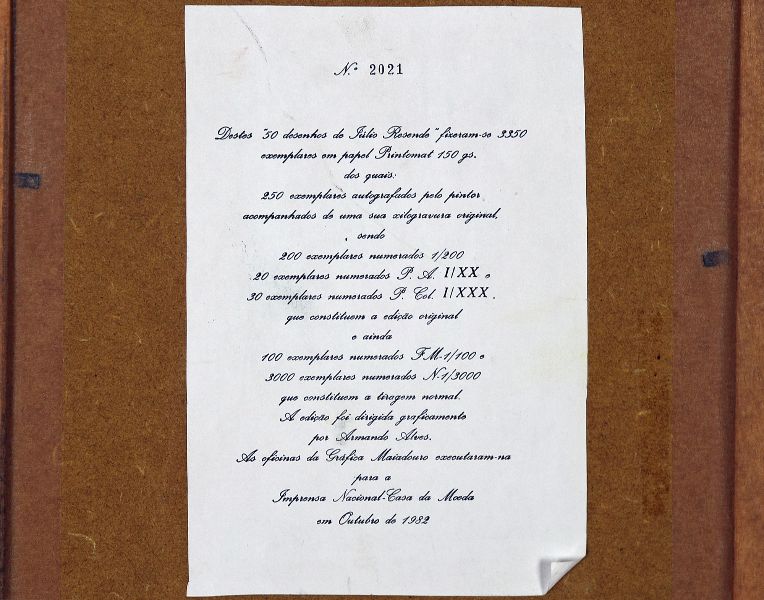 N.º 2021
Destes "50 desenhos de Júlio Resende" fizeram-se 3350
exemplares em papel Printomat 150 gs.
dos quais:
250 exemplares autografados pelo pintor
acompanhados de uma sua xilogravura original,
sendo
200 exemplares numerados 1/200
20 exemplares numerados P. A. I/XX e
30 exemplares numerados P. Col. I/XXX,
que constituem a edição original
e ainda
100 exemplares numerados FM-1/100 e
3000 exemplares numerados N-1/3000
que constituem a tiragem normal.
A edição foi dirigida graficamente
por Armando Alves.
As oficinas da Gráfica Maiadouro executaram-na
para a
Imprensa Nacional-Casa da Moeda
em Outubro de 1982